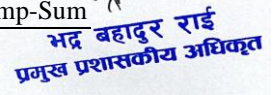 mp-Sum
भद्र बहादुर राई
प्रमुख प्रशासकीय अधिकृत